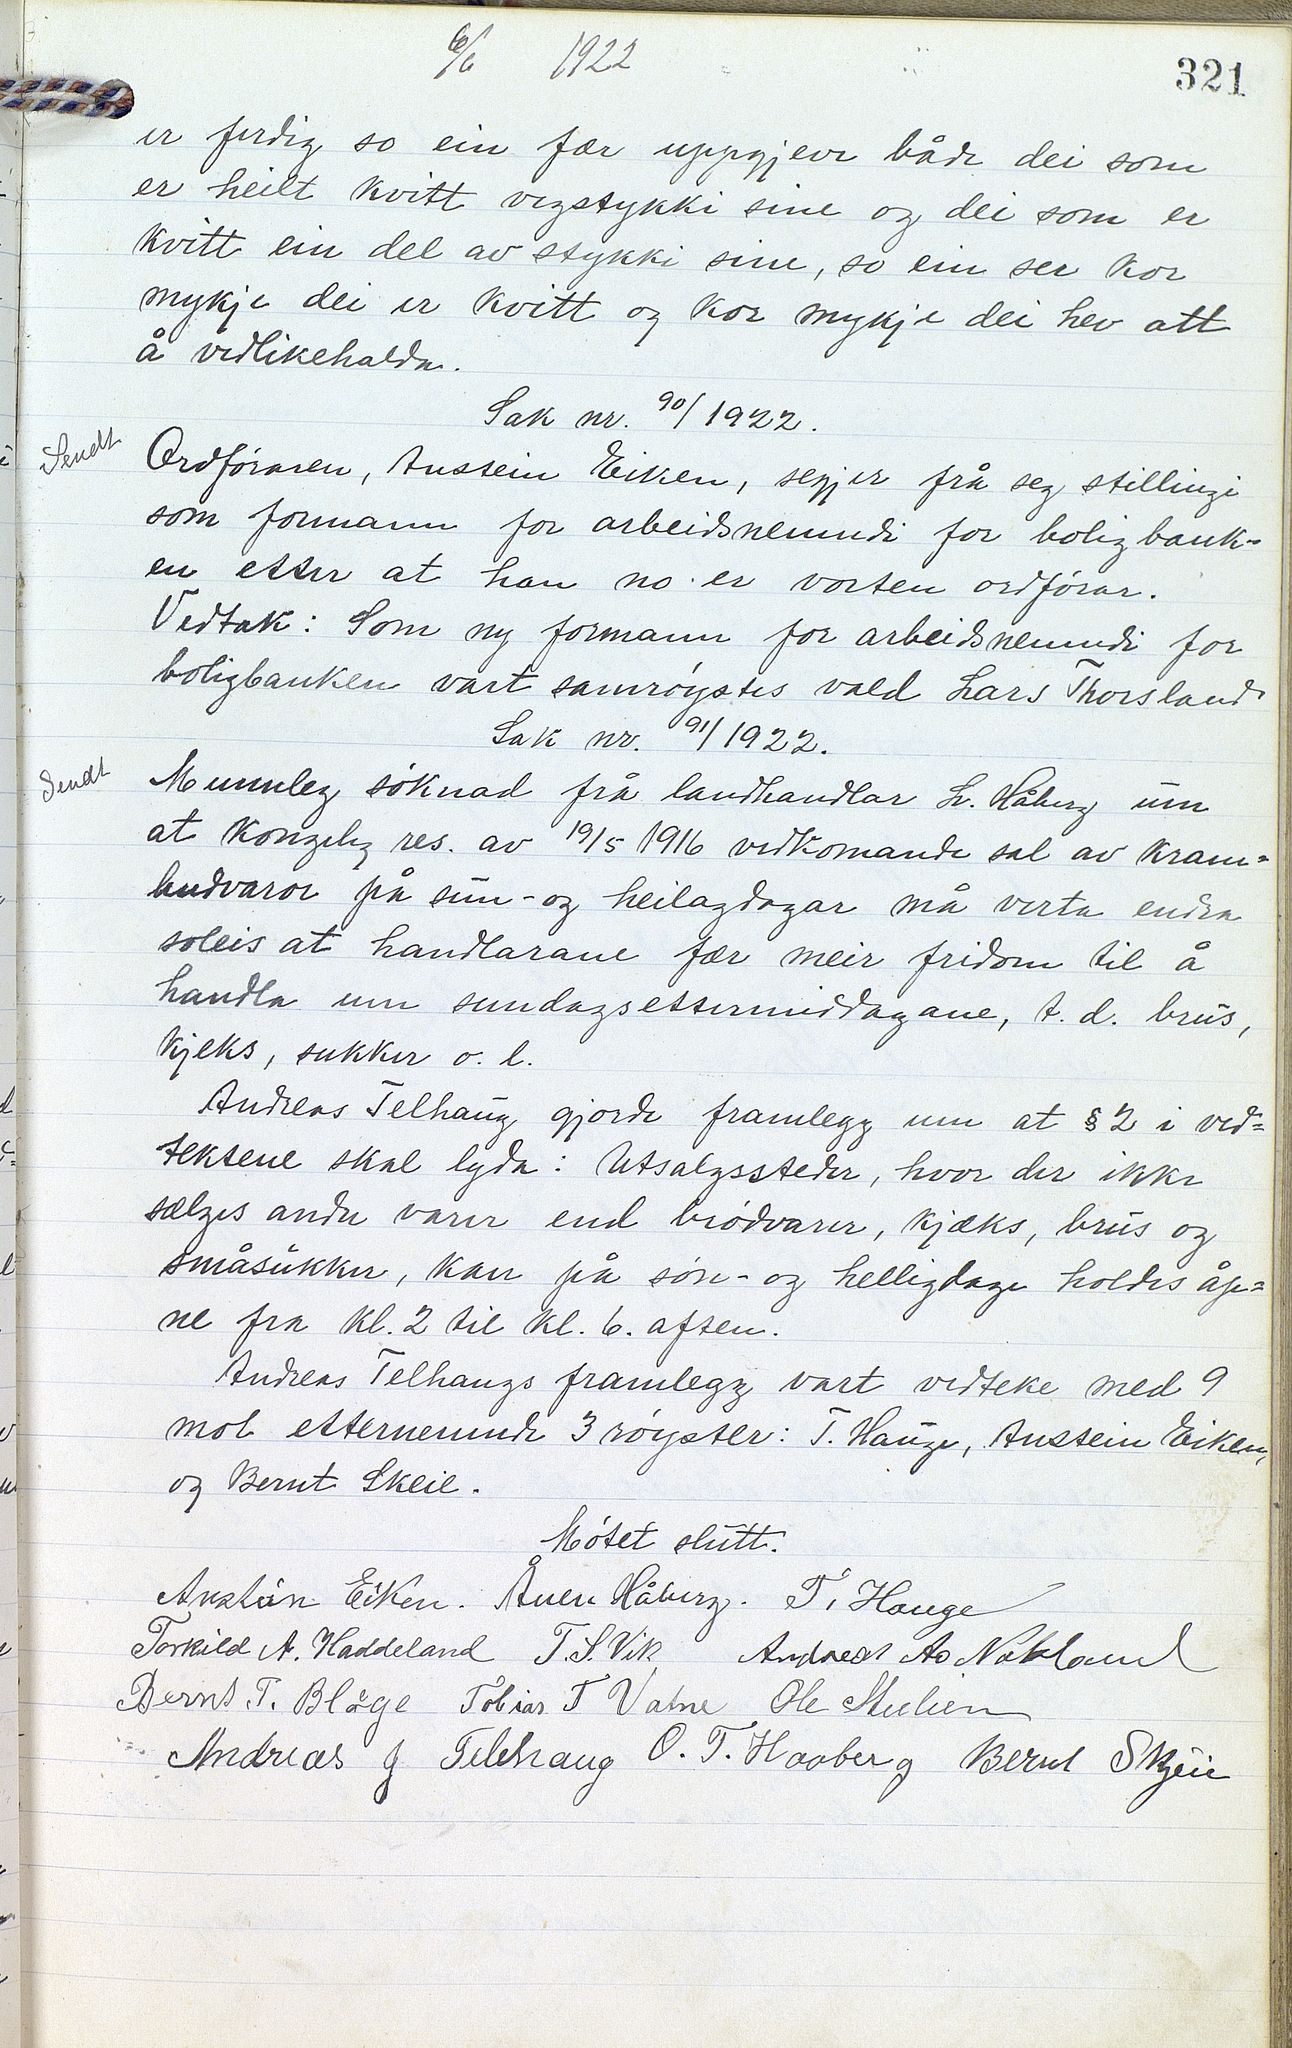 6/6 1922
321
er ferdig so ein fær uppgjeve både dei som
er heilt kvitt vegstykki sine og dei som er
kvitt ein del av stykki sine, so ein ser kor
mykje dei er kvitt og kor mykje dei hev att
å vedlikehalda.
Sak nr. 90/1922.
Sendt
Ordføraren, Austein Eiken, segjer frå seg stillingi
som formann for arbeidsnemndi for boligbank-
en etter at han no er vorten ordførar.
Vedtak: Som ny formann for arbeidsnemndi for
boligbanken vart samrøystes vald Lars Thorsland
Sak nr. 91/1922.
Sendt
Munnleg søknad frå landhandlar Lr. Håberg um
at kongeleg res. av 19/5 1916 vedkomande sal av kram=
budvaror på sun- og heilagdagar må verta endra
soleis at handlarane fær meir fridom til å
handla um sundagsettermiddagane, t. d. brus,
kjeks, sukker o. l.
Andreas Telhaug gjorde framlegg um at § 2 i ved=
tektene skal lyda: Utsalgssteder, hvor der ikke
sælges andre varer end brødvarer, kjæks, brus og
småsukker, kan på søn- og helligdage holdes åp=
ne fra kl. 2 til kl. 6. aften.
Andreas Telhaugs framlegg vart vedteke med 9
mot etternemnde 3 røyster: T. Hauge, Austein Eiken,
og Bernt Skeie.
Møtet slutt.
Austein Eiken. Ånen Håberg. T. Hauge
Torkild A. Haddeland T. S. Vik Andreas As Nakland
Bernt T. Bläge Tobias T Vatne Ole Stulien
Andreas G Telhaug O. T. Haaberg Bernt Skjeie